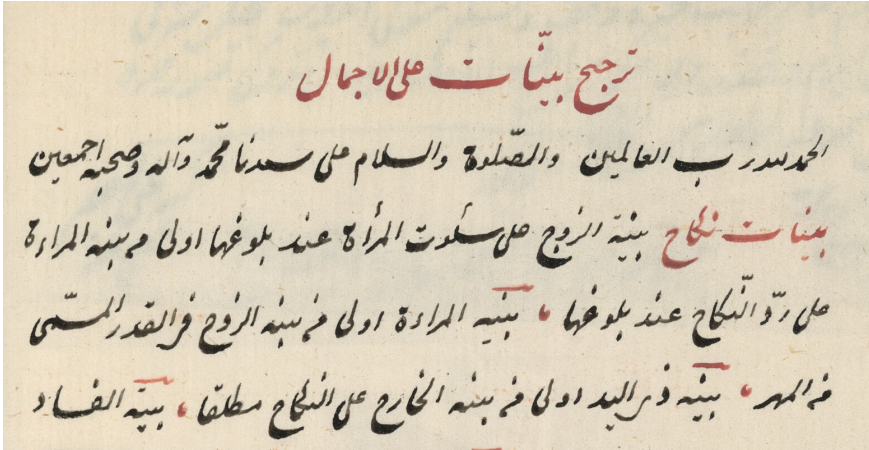 ترجيح بينّات على الاجمال
الحمد لله رب العالمين والصّلوة والسلام على سيدنا محمّد وآله وصحبه اجمعين
بينات نكاح بينة الزوج على سكوت المرأة عند بلوغها اولى من بينه المراءة
على ردّ النّكاح عند بلوغها ، بينه المراءة اولى من بينه الزوج فى القدر المسّمى
من المهر ، بينه ذى اليد اولى من بينه الخارج على النكاح مطلقا ، بينه الفساد